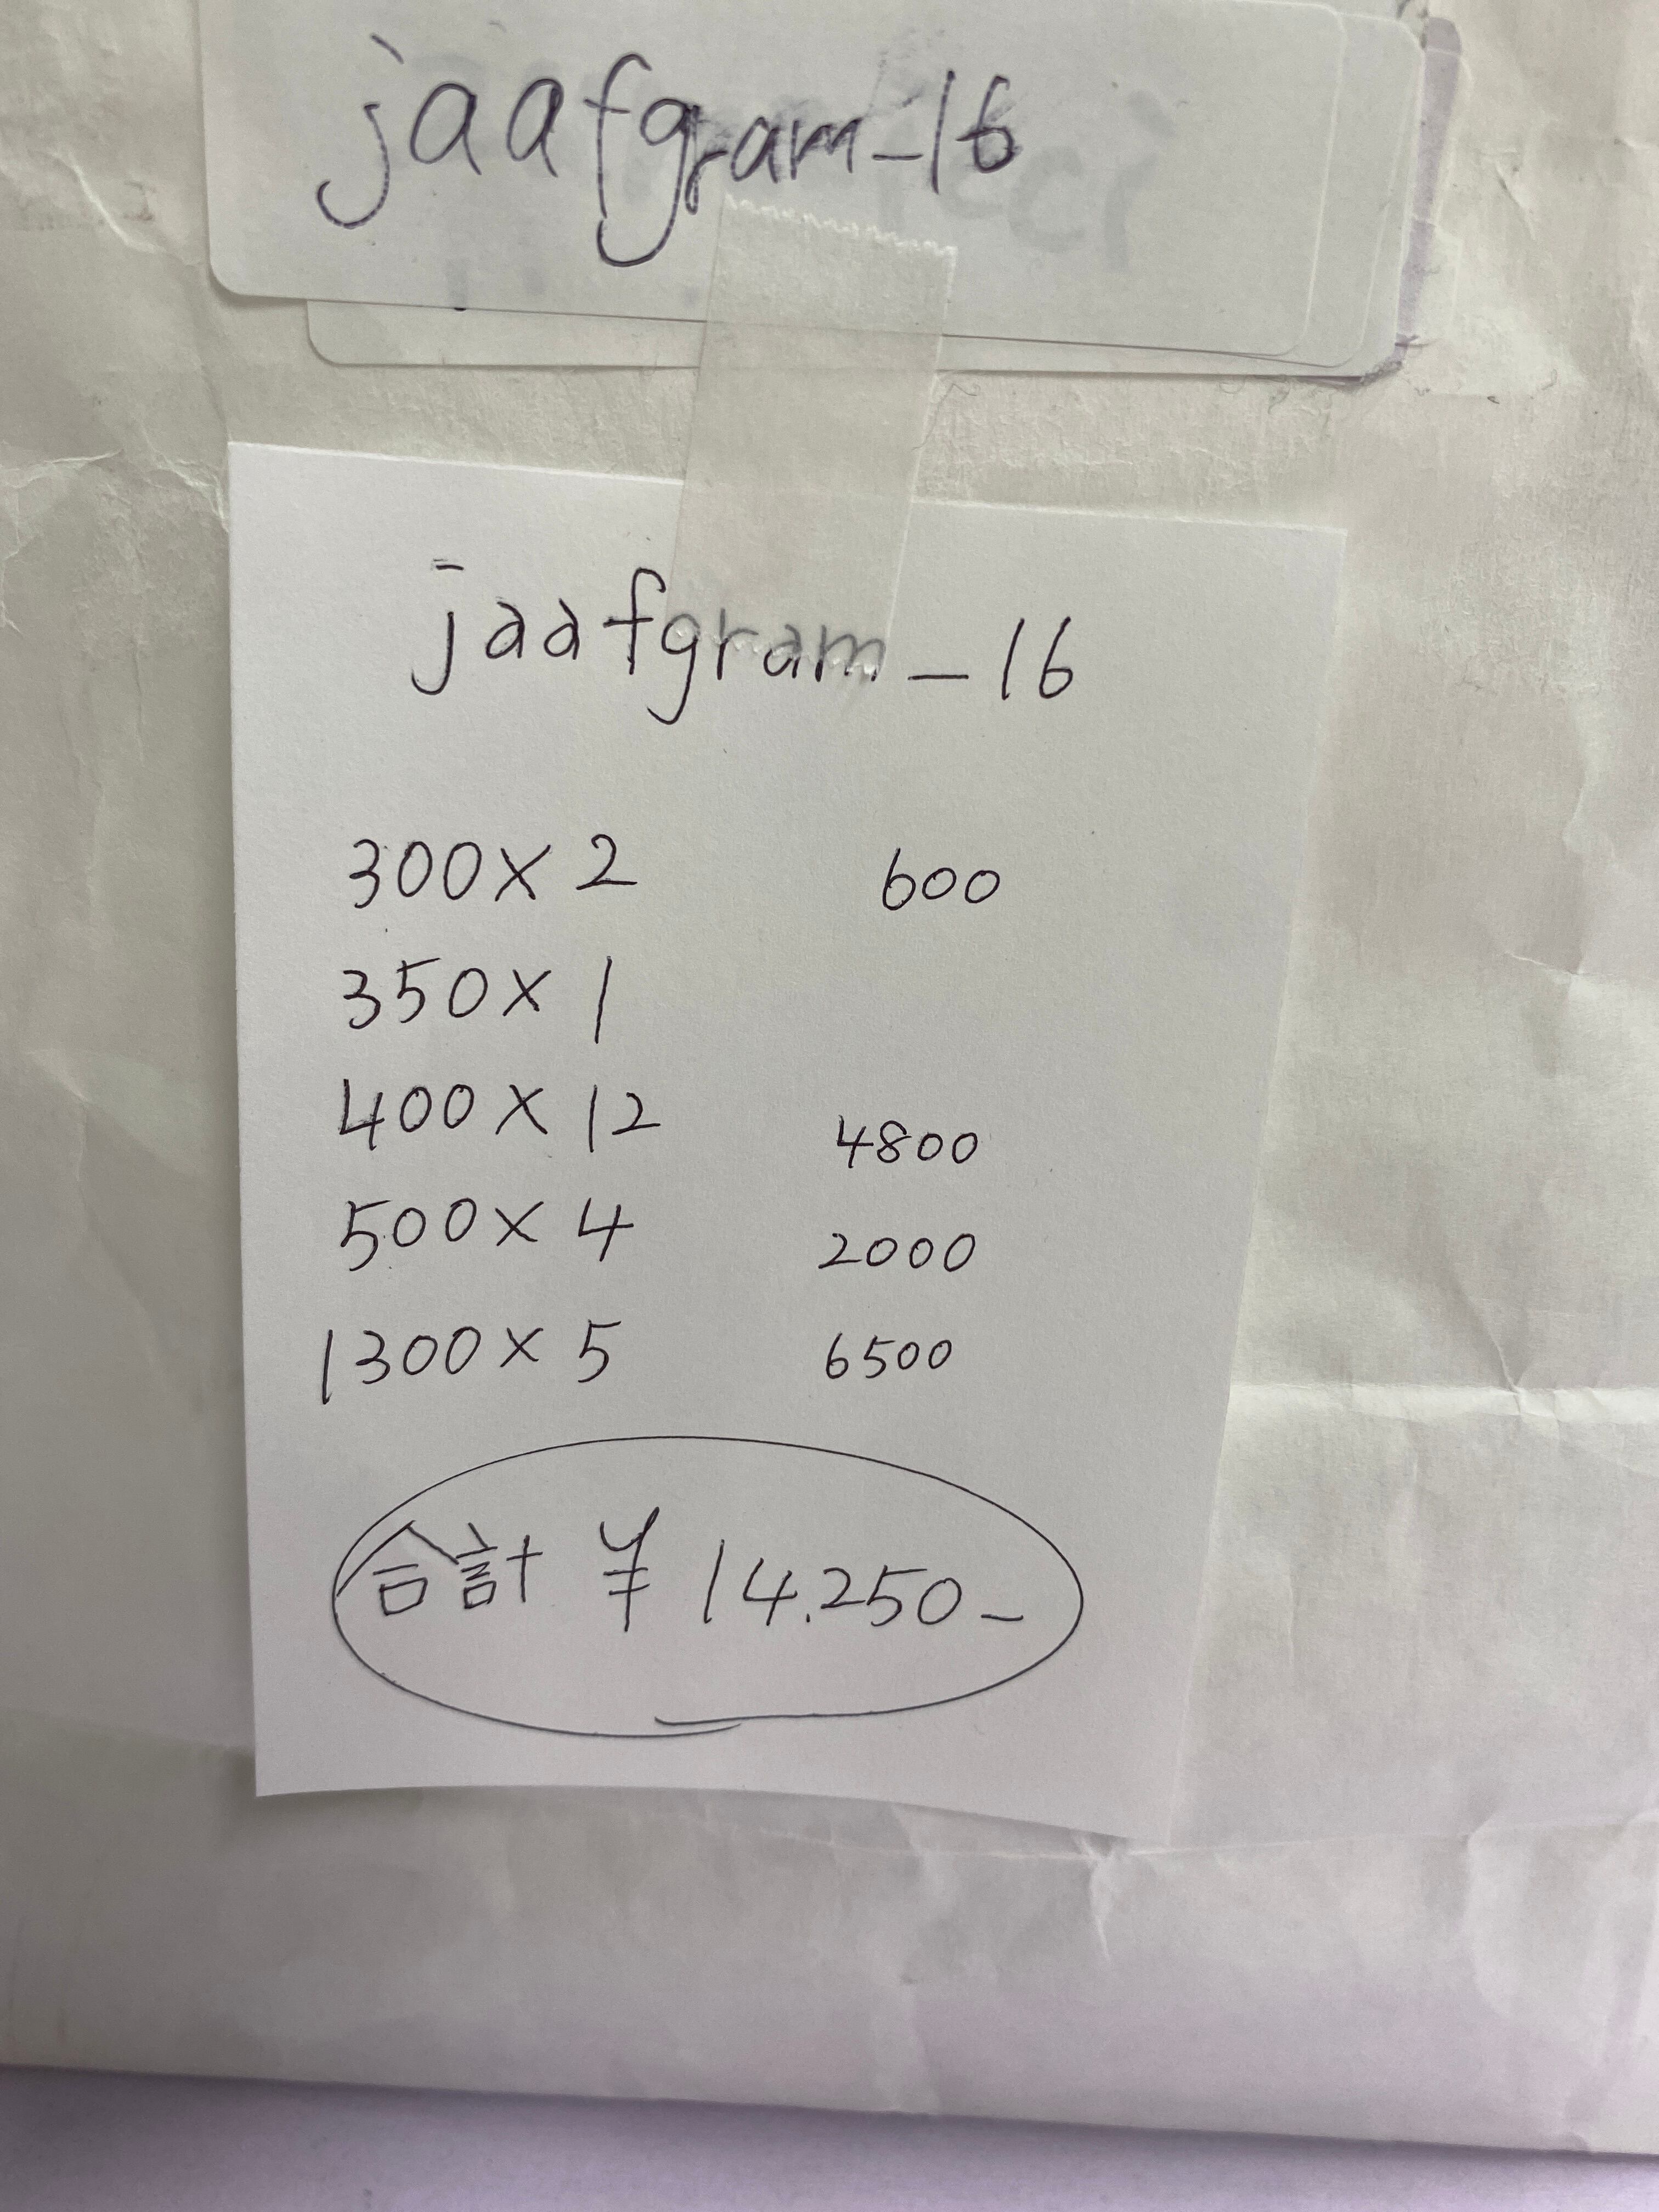 jaafgram_16
jaafgram_16
300× 2 600
350× 1
400× 12 4800
500× 4 2000
1300× 5 6500
合計 ¥ 14.250_